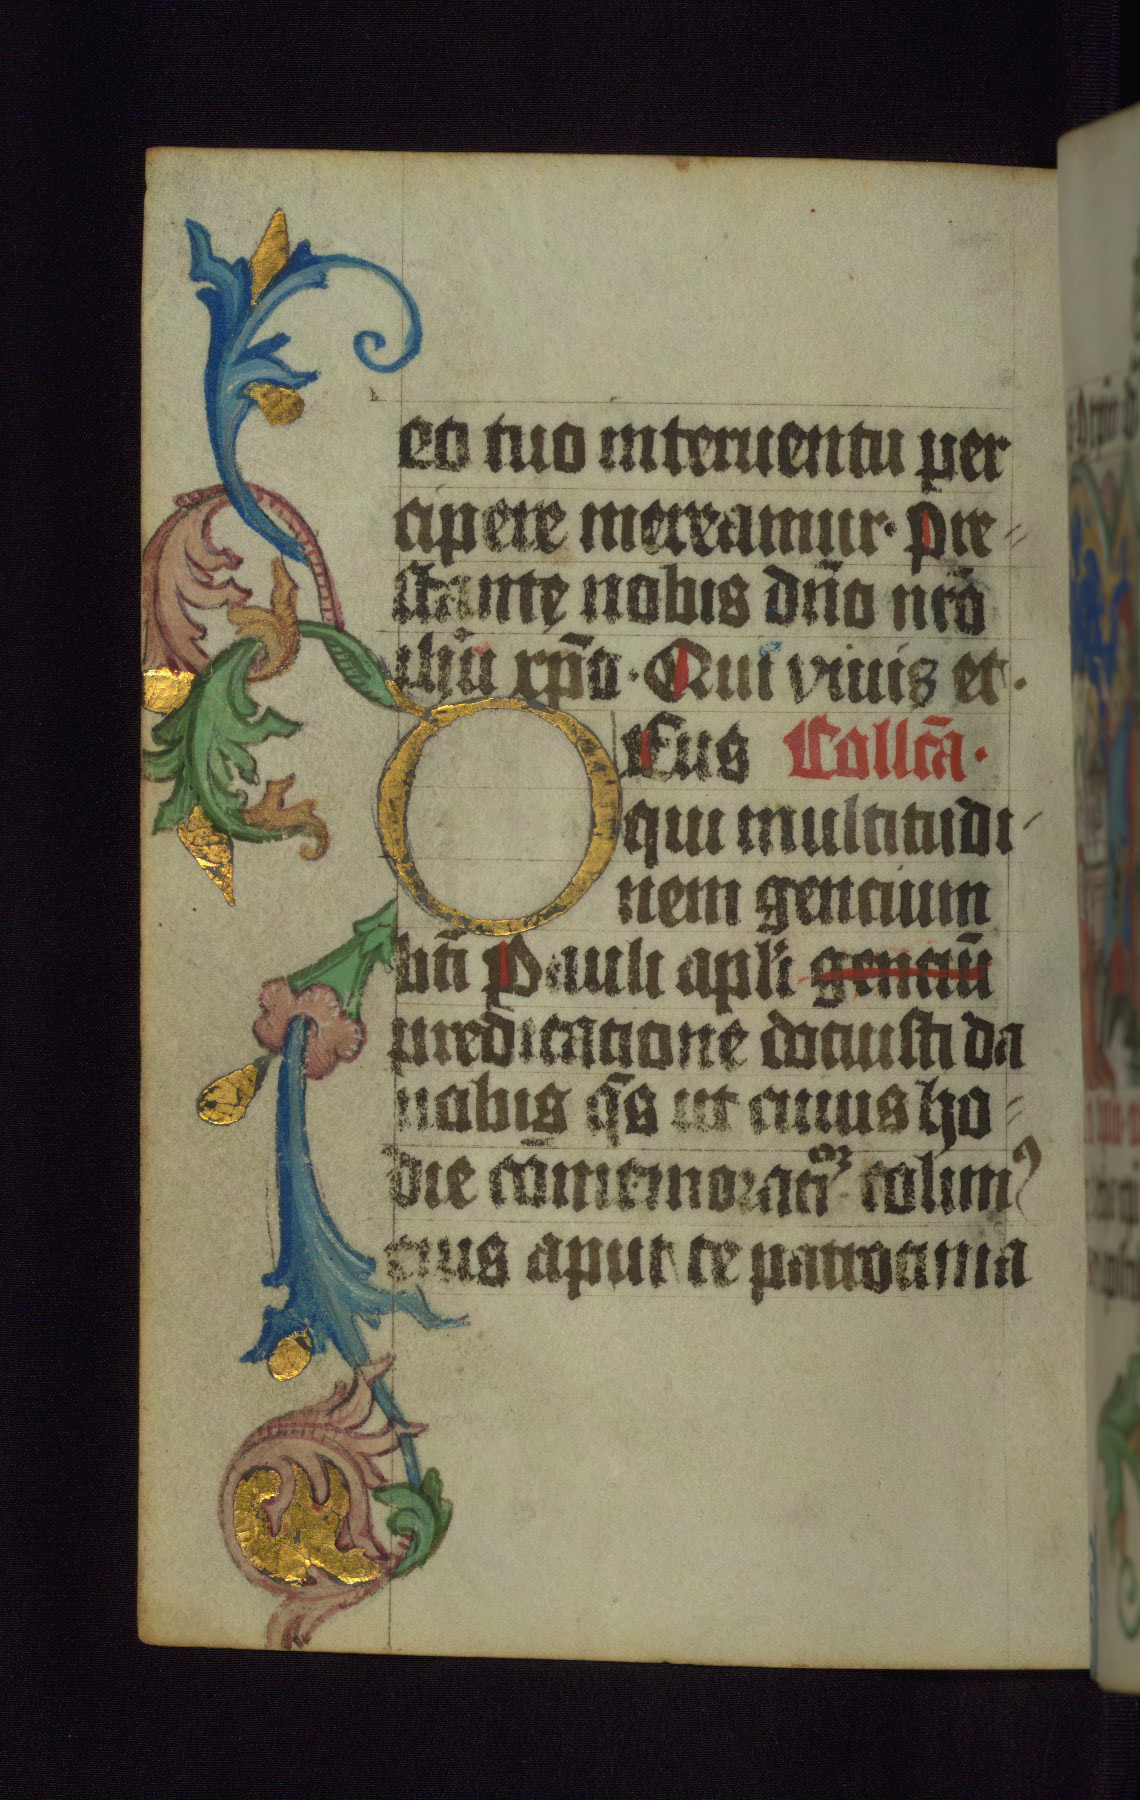 eo tuo interuentu per
cipere mereamur. Pre⸗
stante nobis dn̄o nr̄o
ihū xp̄o. Qui viuis et.
Eus Collc̄a.
qui multitudi
nem gencium
bt̄i Pauli apl̄i genciū
predicatione docuisti da
nobis qs̄ ut cuius ho⸗
die cōmemoracōꝫ colimꝰ
eius aput te patrocinia